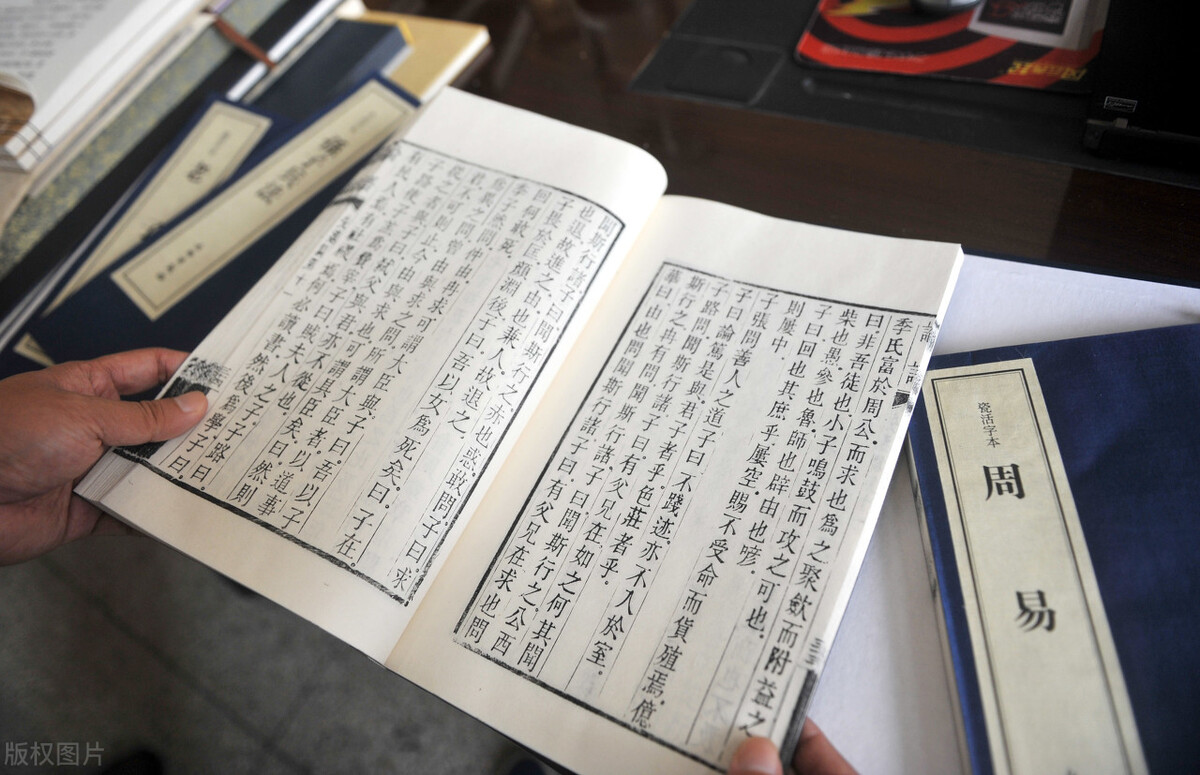 季氏富於周公。而求也為之聚斂而附益之
曰。非吾徒也。小子鳴鼓而攻之。可也。
柴也愚。參也魯。師也辟。由也喭。
子曰。回也其庶乎。屢空。賜不受命而貨殖焉。億
則屢中。
子張問善人之道。子曰。不踐迹。亦不入於室。
子曰。論篤是與。君子者乎。色莊者乎。
子路問聞斯行諸。子曰。有父兄在。如之何其聞
斯行之。冉有問聞斯行諸。子曰。聞斯行之。公西
華曰。由也問聞斯行諸。子曰。有父兄在。求也問
聞斯行諸。子曰。聞斯行之。赤也惑。敢問。子曰。求
也退。故進之。由也兼人。故退之。
子畏於匡。顏淵後。子曰。吾以女為死矣。曰。子在。
回何敢死。
季子然問。仲由冉求可謂大臣與。子曰。吾以子
為異之問。曾由與求之問。所謂大臣者。以道事
君。不可則止。今由與求也。可謂具臣矣。曰。然則
從之者與。子曰。弑父與君。亦不從也。
子路使子羔為費宰。子曰。賊夫人之子。子路曰。
有民人焉。有社稷焉。何必讀書。然後為學。子曰。
瓷活字本
周易
版权图片